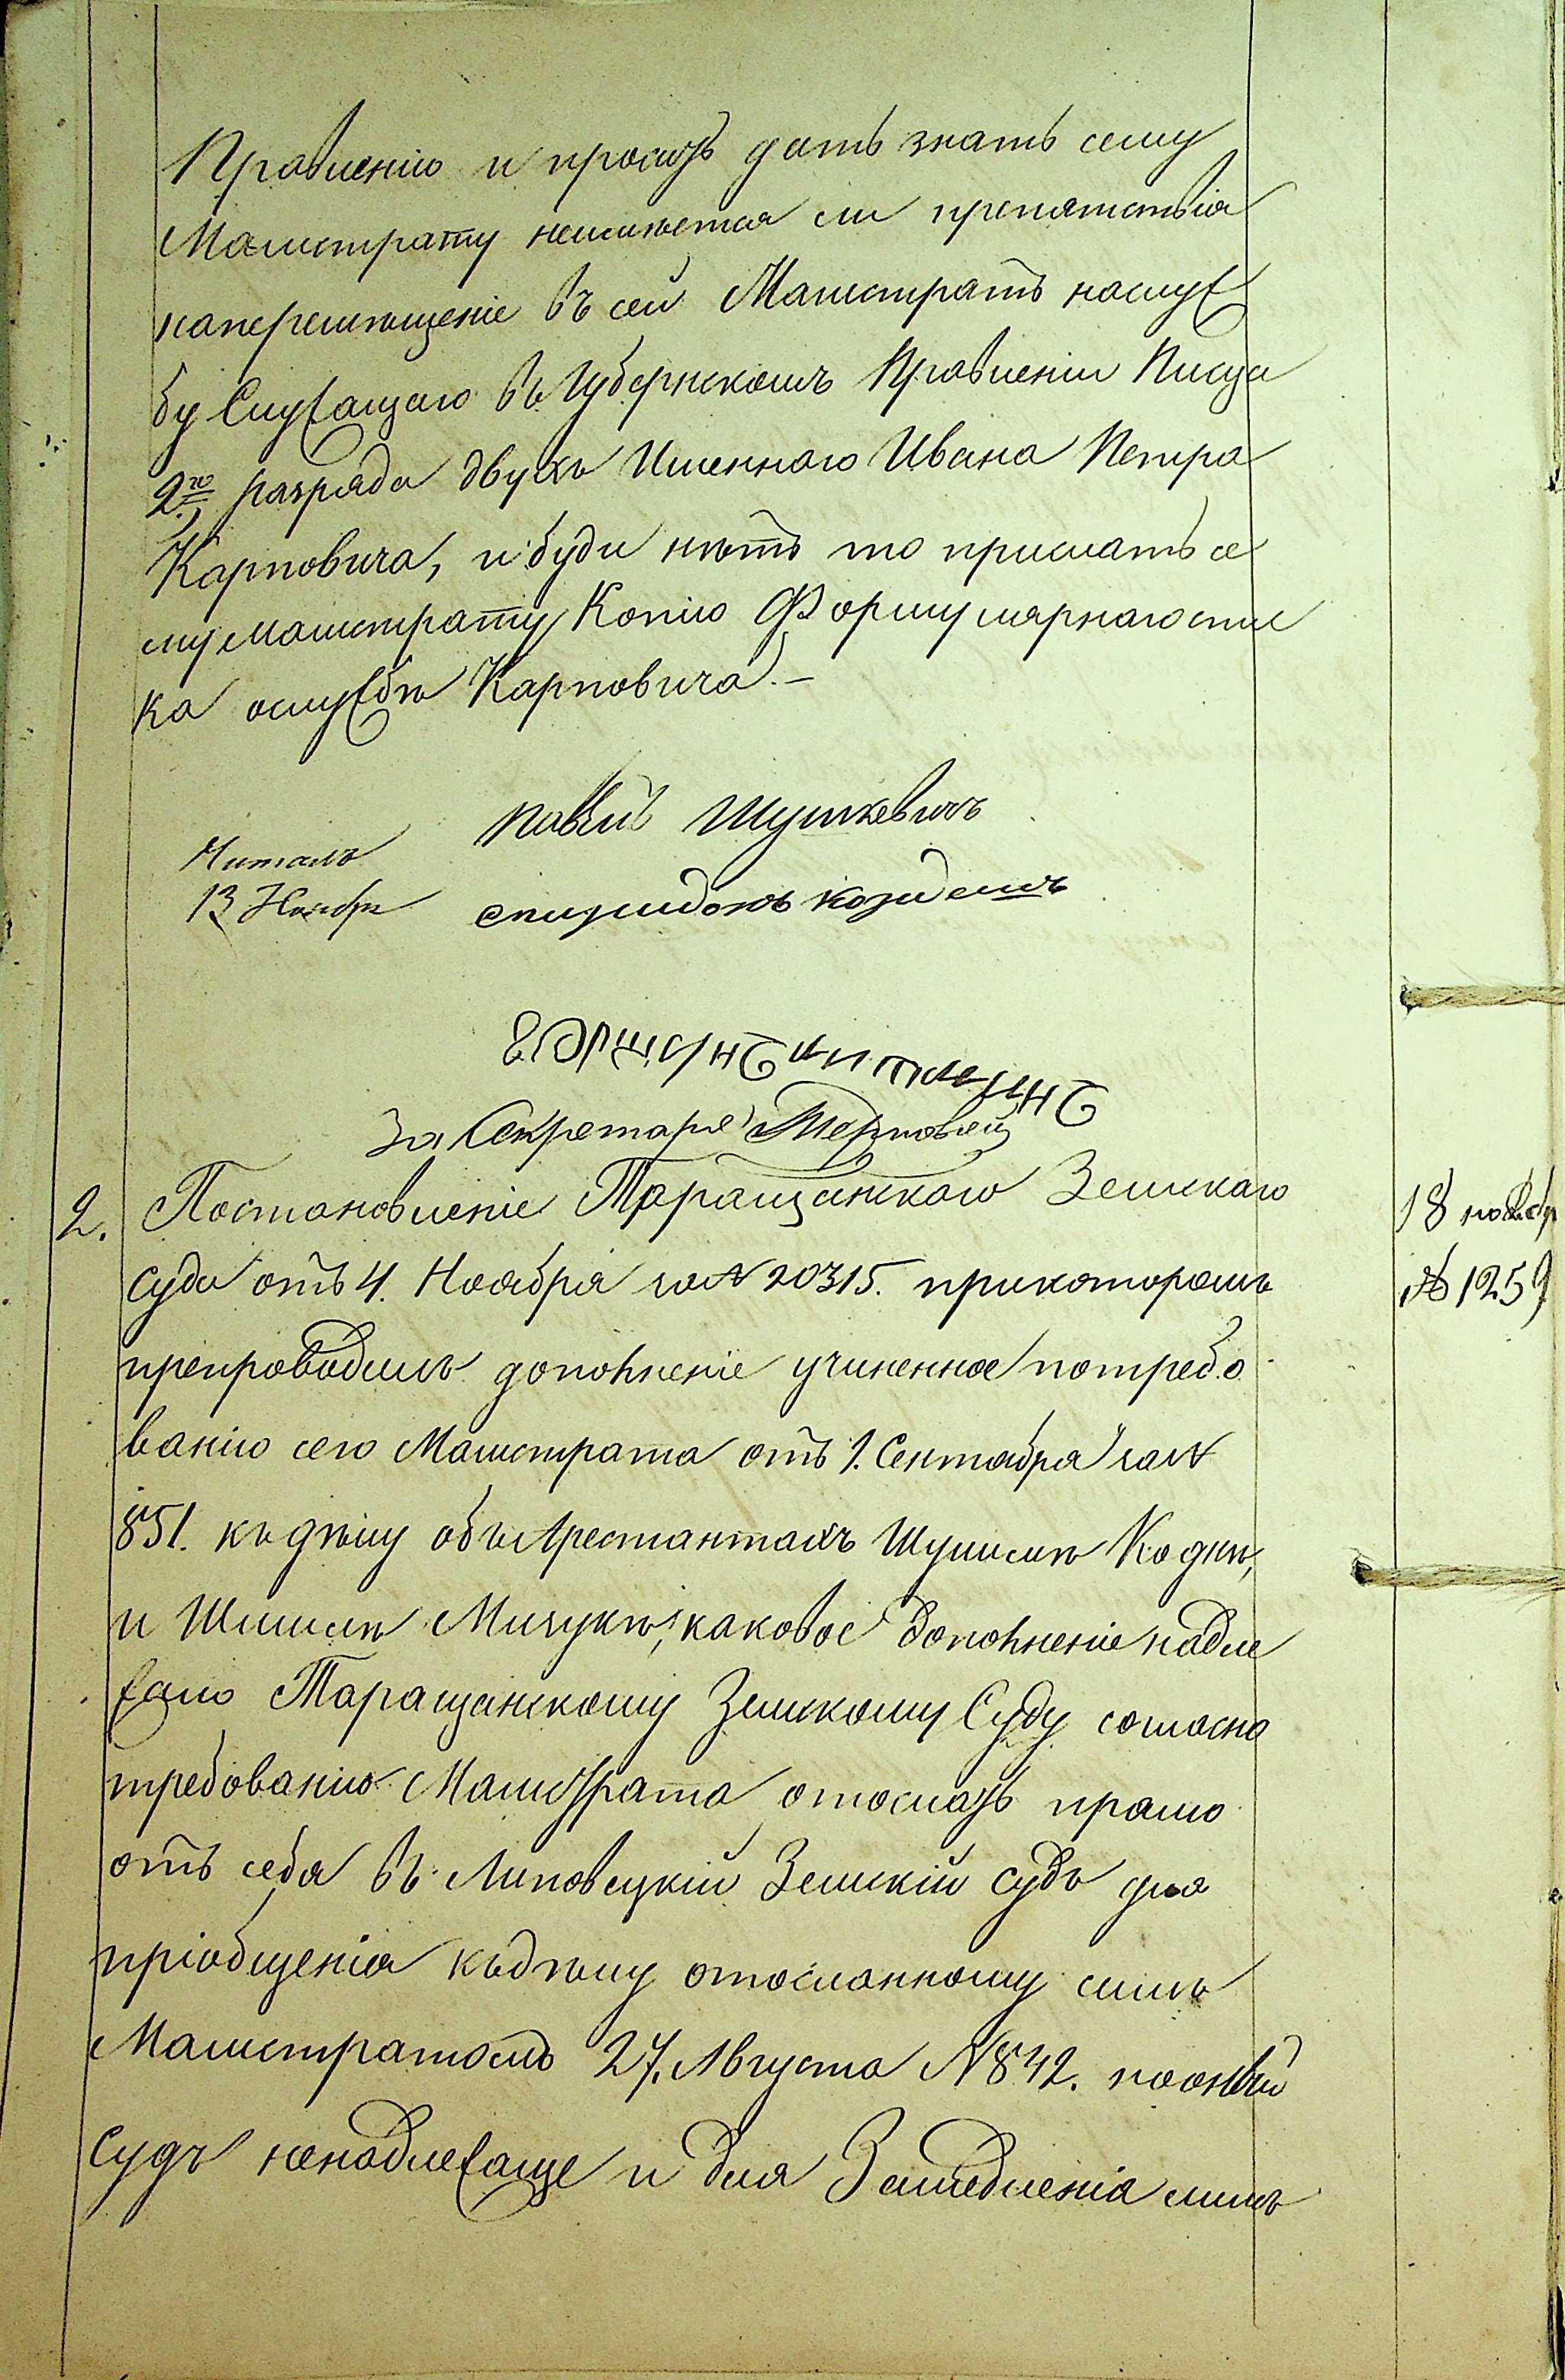 Правленію и просить дать знать сему
Магистрату неимѣется ли препятствія
наперемѣщеніе въ сей Магистратъ наслуж
бу Служащаго въ Губернскомъ Правленіи Писца
2го разряда двухъ Именнаго Ивана Петра
Карповича, и буди нѣтъ то прислать се
му магистрату Копію Формулярнаго спис
ка ослужбѣ Карповича. —
Павелъ Шушкевичъ
Читалъ
13 Ноября
спиридонъ
За Секретаря Терповецъ
2. Постановленіе Таращанскаго Земскаго
18 ноябр
Суда отъ 4. Ноября за № 20315. прикоторомъ
№ 1259
препроводилъ дополненіе учиненное потребо
ванію сего Магистрата отъ 1. Сентября за №
851. къ дѣлу объ Арестантахъ Шулимѣ Кодкѣ,
и Шишлѣ Мичукѣ; каковое дополненіе надле
жало Таращанскому Земскому Суду согласно
требованію Магистрата отослать прямо
отъ себя въ Липовецкій Земскій Судъ для
пріобщенія къдѣлу отосланному симъ
Магистратомъ 27. Августа № 842. воный
Судъ ненадлежаще и для Замедленія лишь